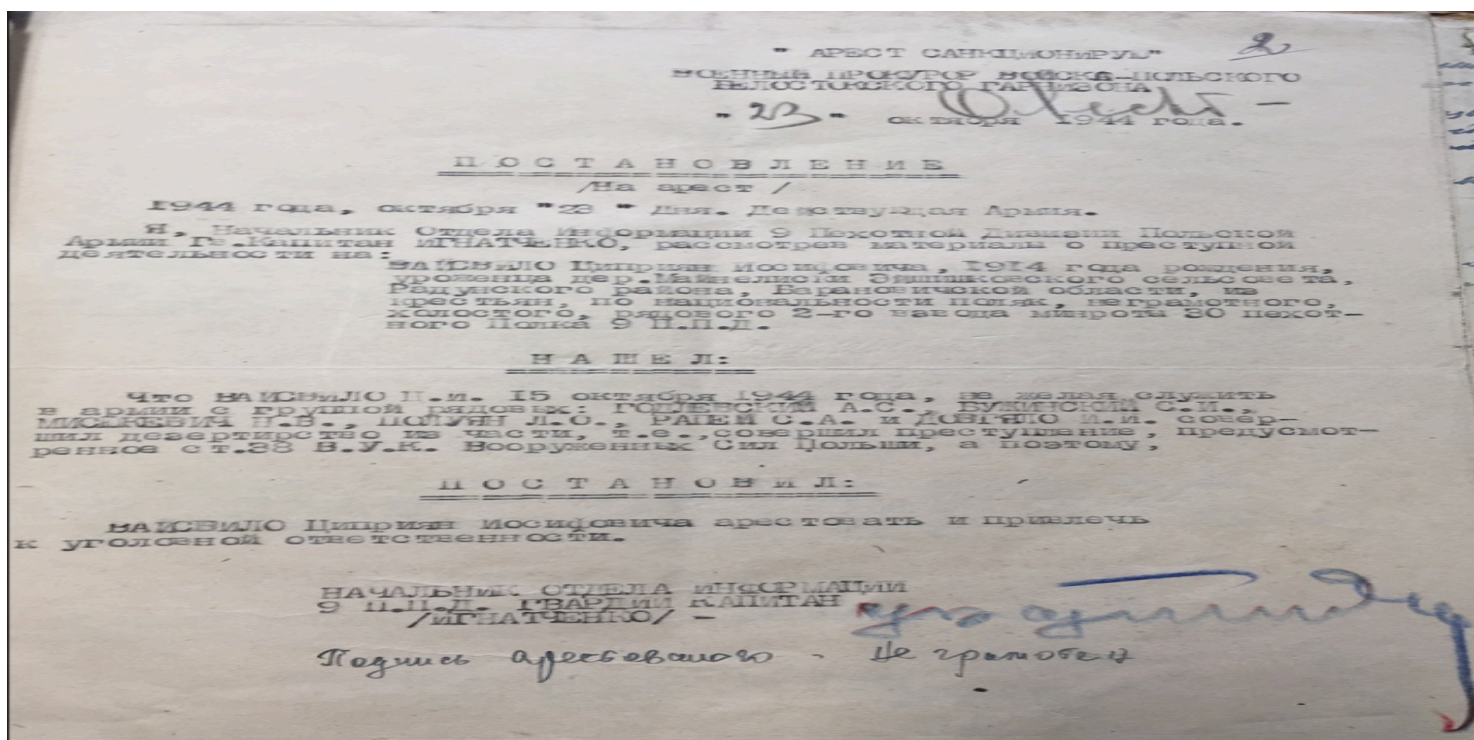 2
" АРЕСТ САНКЦИОНИРУЮ"
ВОЕННЫЙ ПРОКУРОР ВОЙСКА-ПОЛЬСКОГО
БЕЛОСТОКСКОГО ГАРНИЗОНА
" 23 " октября 1944 года.
П О С Т А Н О В Л Е Н И Е
/На арест /
1944 года, октября "23 " дня. Действующая Армия.
Я, Начальник Отдела Информации 9 Пехотной Дивизии Польской
Армии Гв.Капитан ИГНАТЧЕНКО, рассмотрев материалы о преступной
деятельности на:
ВАЙСВИЛО Циприян Иосифовича, 1914 года рождения,
уроженца дер. Эйшишковского сельсовета,
Радунского района, Барановичской области, из
крестьян, по национальности поляк, неграмотного,
холостого, рядового 2-го взвода минроты 30 пехот-
ного Полка 9 П.П.Д.
Н А Ш Е Л:
Что ВАЙСВИЛО Ц.И. 15 октября 1944 года, не желая служить
в армии с группой рядовых: ГОДЛЕВСКИЙ А.С., С.И.,
МИСЬКЕВИЧ П.В., ПОЛУЯН Л.С., С.А. и ДОВГЯЛО И.И. совер-
шил дезертирство из части, т.е., совершил преступление, предусмот-
ренное ст.38 В.У.К. Вооруженных Сил Польши, а поэтому,
П О С Т А Н О В И Л:
ВАЙСВИЛО Циприян Иосифовича арестовать и привлечь
к уголовной ответственности.
НАЧАЛЬНИК ОТДЕЛА ИНФОРМАЦИИ
9 П.П.Д. ГВАРДИИ КАПИТАН
/ИГНАТЧЕНКО/ -
Подпись арестованого - Не грамотен